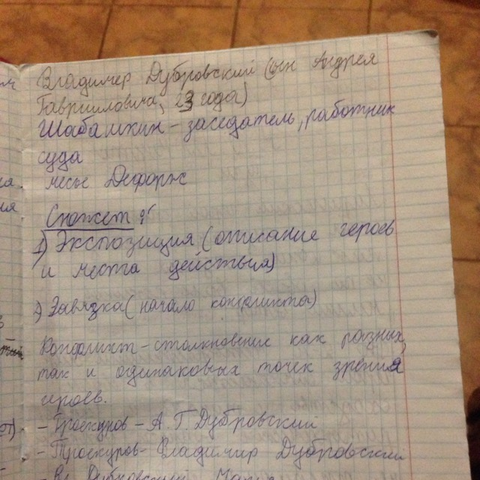 Владимир Дубровский (сын Андрея
Гавриловича, 23 года)
Шабашкин - заседатель, работник
суда
месье Дефорж
Сюжет
1) Экспозиция (описание героев
и места действия)
2) Завязка (начало конфликта)
Конфликт - столкновение как разных,
так и одинаковых точек зрения
героев.
- Троекуров - А. Г Дубровский
- Троекуров - Владимир Дубровский
Вл. Дубровский